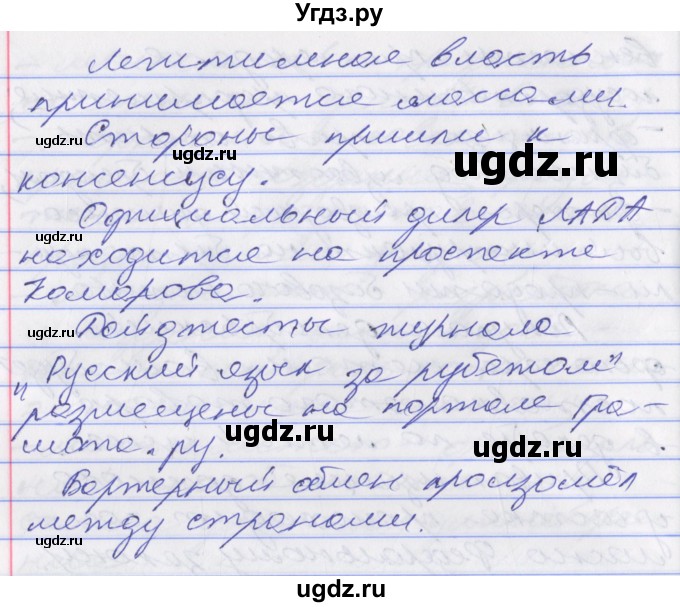 Угдз.ру
Легитимная власть
принимается массами.
Стороны пришли к
консенсусу.
Официальный дилер ЛАДА
находится на проспекте
Комарова.
Дайджесты журнала
"Русский язык за рубежом"
размещены на портале Гра-
мота.ру.
Бартерный обмен произошёл
между странами.
ugdz.ru
ugdz.ru
ugdz.ru
ugdz.ru
ugdz.ru
ugdz.ru
ugdz.ru
ugdz.ru
ugdz.ru
ugdz.ru
ugdz.ru
ugdz.ru